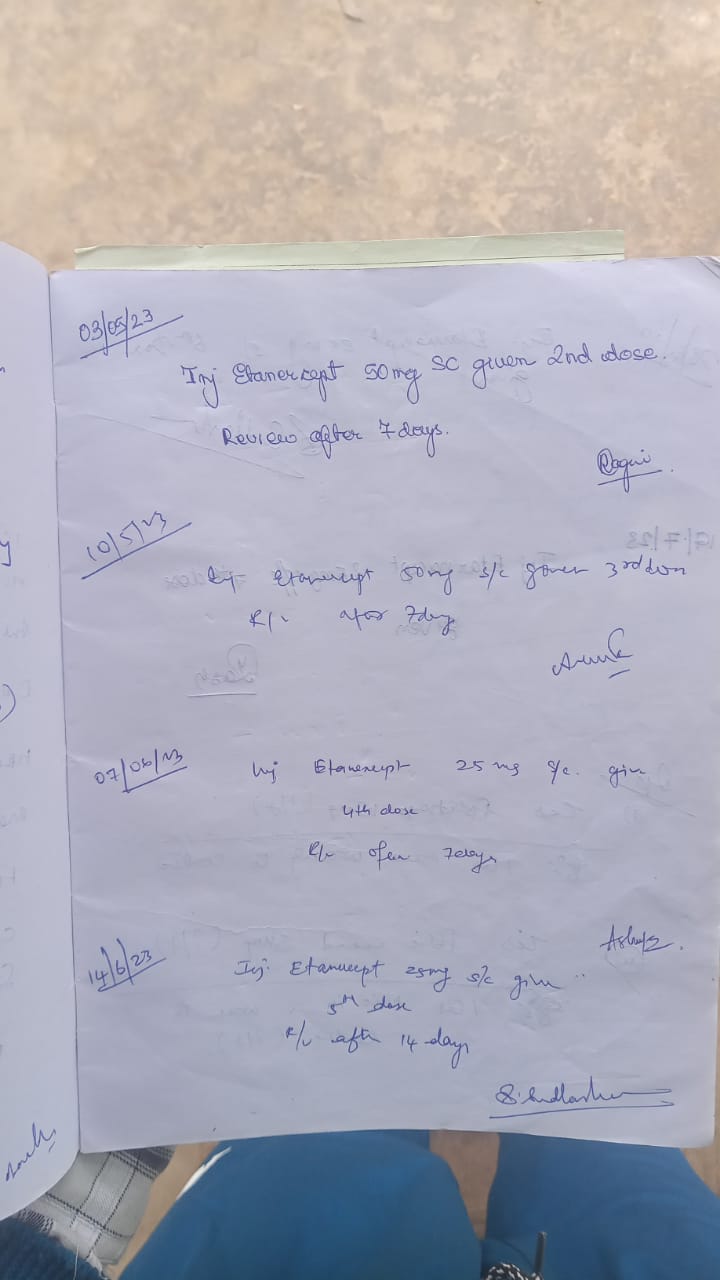 03/05/23
Inj Etanercept 50mg SC given 2nd dose.
Review after 7 days.
10/5/23
Inj Etanercept 50mg s/c given 3rd dose
R/v after 7day
07/06/23
Inj Etanercept 25 mg s/c. given
4th dose
R/v after 7days
14/6/23
Inj. Etanercept 25mg s/c given
5th dose
R/v after 14 days